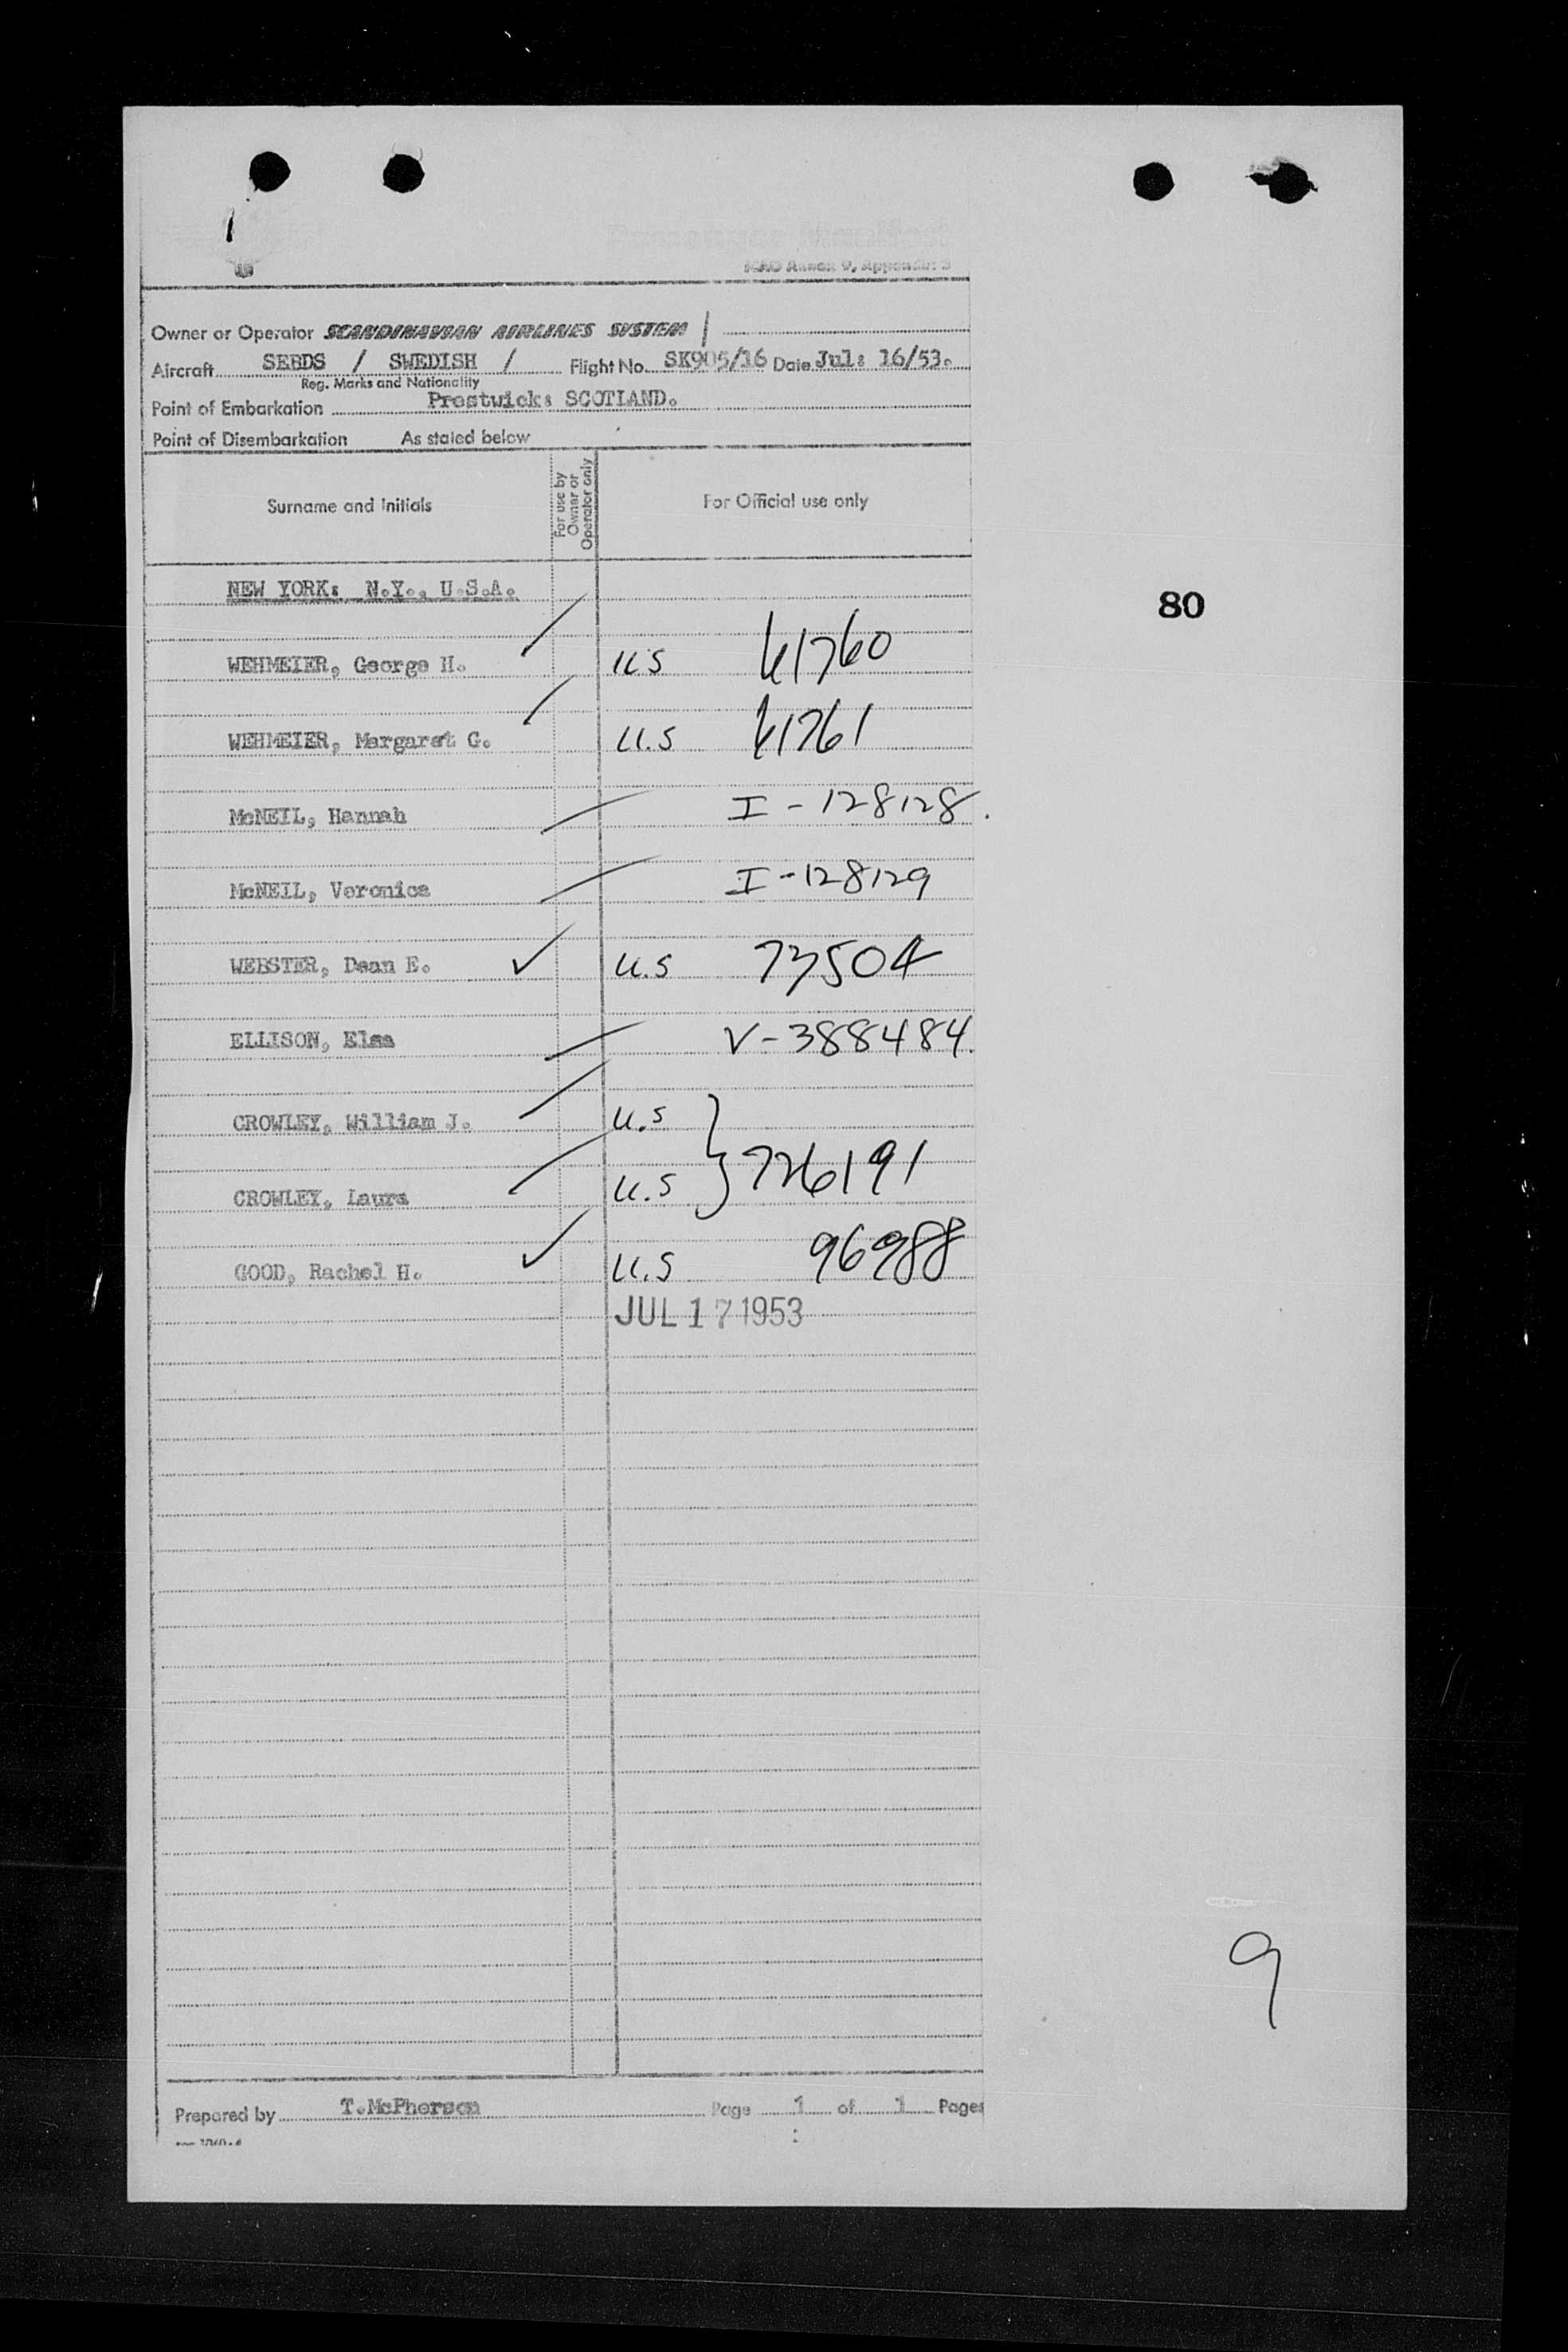 ICAO Annex 9, Appendix 3
Owner or Operator SCANDINAVIAN AIRLINES SYSTEM /
Aircraft SEBDS / SWEDISH / Flight No. SK905/16 Date Jul: 16/53.
Reg. Marks and Nationality
Point of Embarkation Prestwick: SCOTLAND.
Point of Disembarkation As stated below
Surname and Initials For use by Owner or Operator only For Official use only
NEW YORK: N.Y., U.S.A.
80
WEHMEIER, George H. U.S 61760
WEHMEIER, Margaret G. U.S 61761
McNEIL, Hannah I - 128128.
McNEIL, Veronica I - 128129
WEBSTER, Dean E. ✓ U.S 73504
ELLISON, Elsa V - 388484
CROWLEY, William J. U.S
} 726191
CROWLEY, Laura U.S
GOOD, Rachel H. ✓ U.S 96988
JUL 17 1953
9
Prepared by T.McPherson Page 1 of 1 Pages